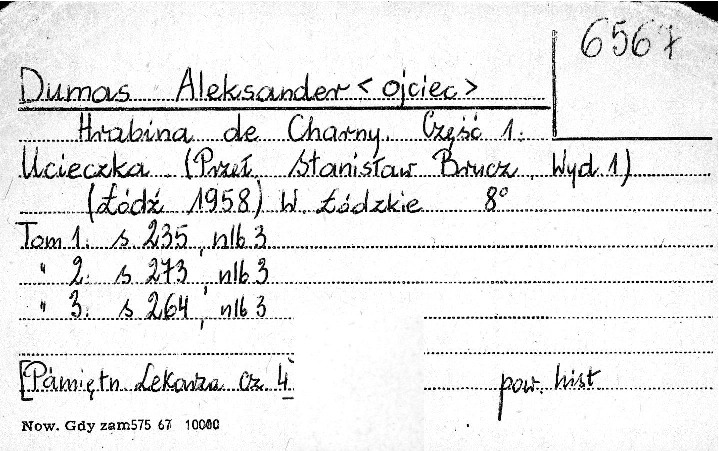 6567
Dumas Aleksander < ojciec >
Hrabina de Charny. Część 1.
Ucieczka (Przeł. Stanisław Brucz. Wyd. 1)
(Łódź 1958) W. Łódzkie 8°
Tom 1. s 235, nlb 3
" 2. s 273, nlb 3
" 3. s 264, nlb 3
[Pamiętn Lekarza cz. 4]
pow. hist
Now. Gdy zam575 67 10000